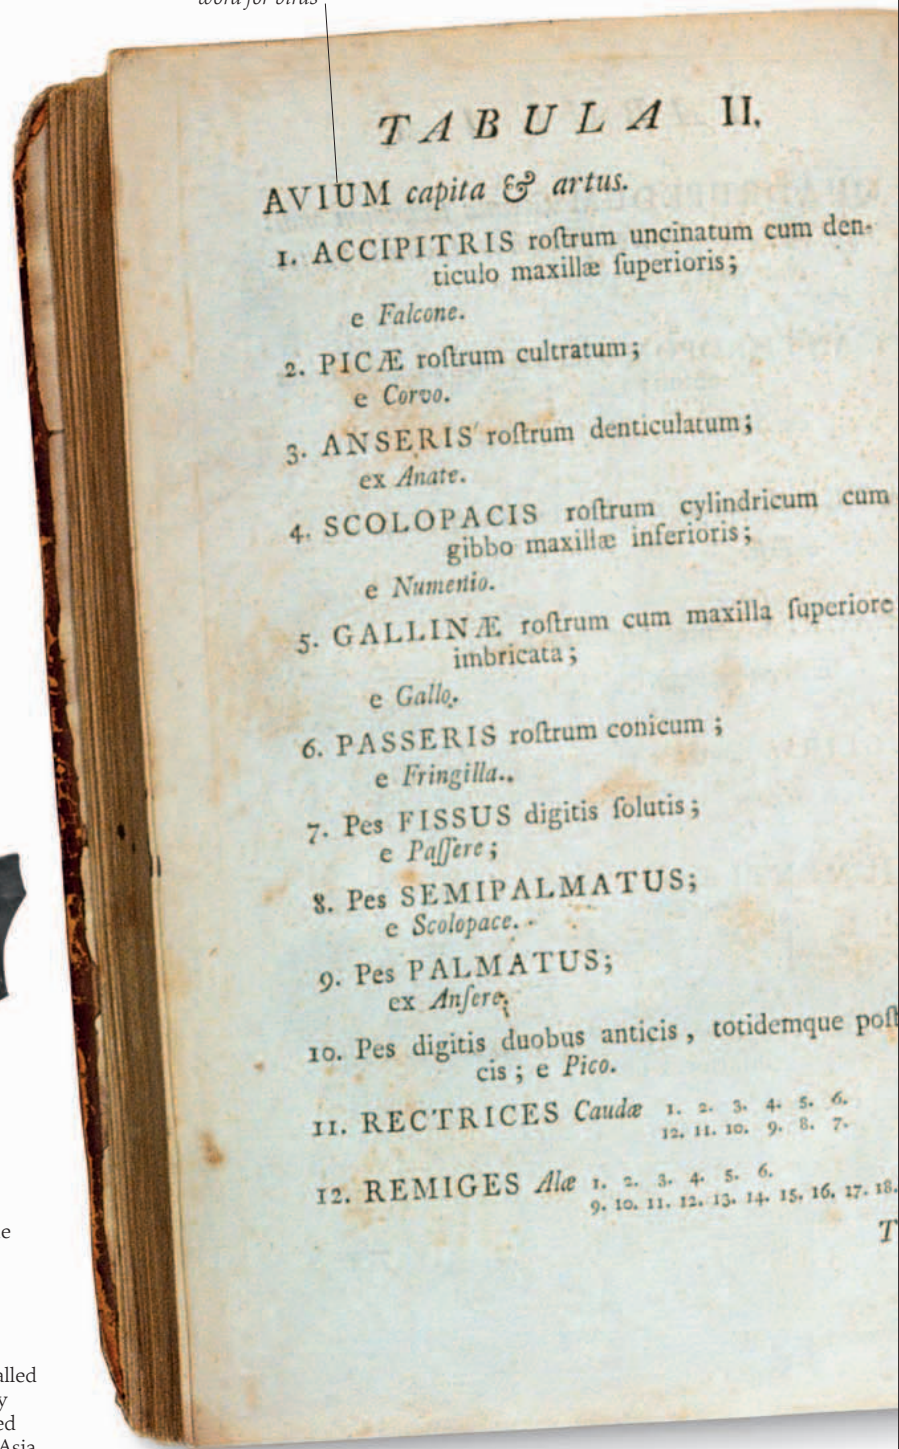 word for birds
TABULA II.
AVIUM capita & artus.
1. ACCIPITRIS roſtrum uncinatum cum den-
ticulo maxillæ ſuperioris;
e Falcone.
2. PICÆ roſtrum cultratum;
e Corvo.
3. ANSERIS roſtrum denticulatum;
ex Anate.
4. SCOLOPACIS roſtrum cylindricum cum
gibbo maxillæ inferioris;
e Numenio.
5. GALLINÆ roſtrum cum maxilla ſuperiore
imbricata;
e Gallo.
6. PASSERIS roſtrum conicum;
e Fringilla..
7. Pes FISSUS digitis ſolutis;
e Paſſere;
8. Pes SEMIPALMATUS;
e Scolopace.
9. Pes PALMATUS;
ex Anſere;
10. Pes digitis duobus anticis, totidemque poſt
cis; e Pico.
11. RECTRICES Caudæ 1. 2. 3. 4. 5. 6.
12. 11. 10. 9. 8. 7.
12. REMIGES Alæ 1. 2. 3. 4. 5. 6.
9. 10. 11. 12. 13. 14. 15. 16. 17. 18.
T
e
alled
y
ed
Asia